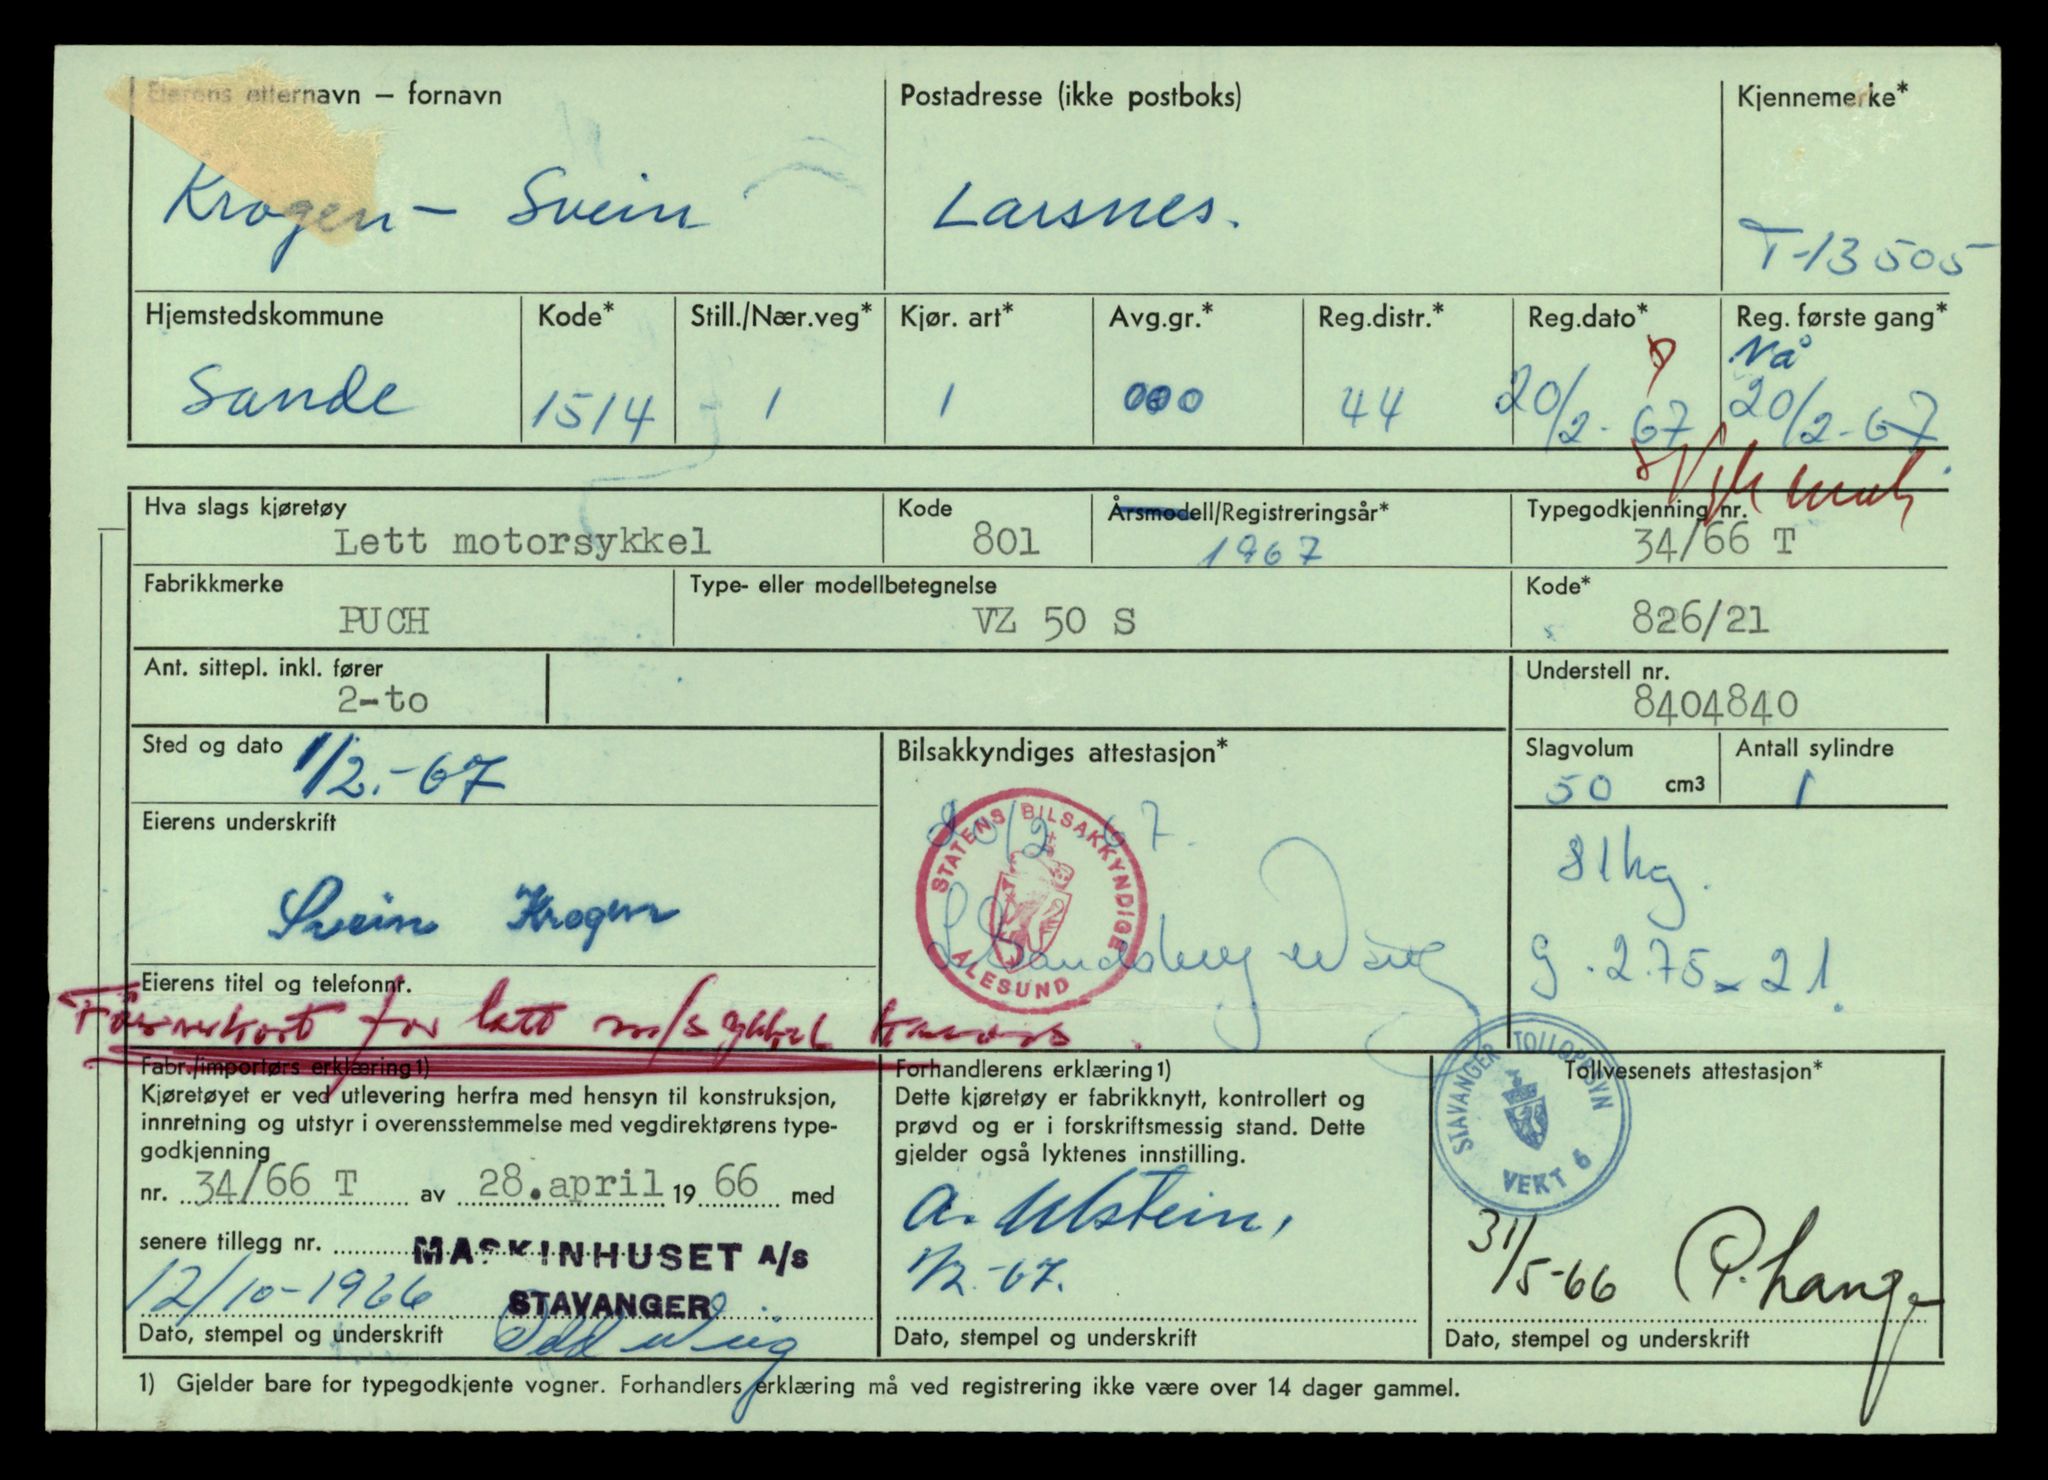 Eierens etternavn – fornavn
Krogen – Svein
Postadresse (ikke postboks)
Larsnes.
Kjennemerke*
T-13505
Hjemstedskommune
Sande
Kode*
1514
Still./Nær.veg*
1
Kjør. art*
1
Avg.gr.*
000
Reg.distr.*
44
Reg.dato*
20/2-67
Reg. første gang*
Nå
20/2-67
Hva slags kjøretøy
Lett motorsykkel
Kode
801
Årsmodell/Registreringsår*
1967
Typegodkjenning nr.
34/66 T
Fabrikkmerke
PUCH
Type- eller modellbetegnelse
VZ 50 S
Kode*
826/21
Ant. sittepl. inkl. fører
2-to
Understell nr.
8404840
Sted og dato
1/2.-67
Bilsakkyndiges attestasjon*
20/2 67.
STATENS BILSAKKYNDIGE
ÅLESUND
Slagvolum
50 cm3
Antall sylindre
1
81kg.
g. 2.75 x 21.
Eierens underskrift
Svein Krogen
Eierens titel og telefonnr.
Førerkort for lett m/sykkel
Fabr./importørs erklæring 1)
Kjøretøyet er ved utlevering herfra med hensyn til konstruksjon,
innretning og utstyr i overensstemmelse med vegdirektørens type-
godkjenning
nr. 34/66 T av 28.april 19 66 med
senere tillegg nr.
MASKINHUSET A/S
STAVANGER
12/10-1966
Dato, stempel og underskrift
Forhandlerens erklæring 1)
Dette kjøretøy er fabrikknytt, kontrollert og
prøvd og er i forskriftsmessig stand. Dette
gjelder også lyktenes innstilling.
A. Ulstein,
1/2.-67.
Dato, stempel og underskrift
Tollvesenets attestasjon*
STAVANGER TOLLOPPSYN
VEKT 6
31/5-66 P. Lange
Dato, stempel og underskrift
1) Gjelder bare for typegodkjente vogner. Forhandlers erklæring må ved registrering ikke være over 14 dager gammel.